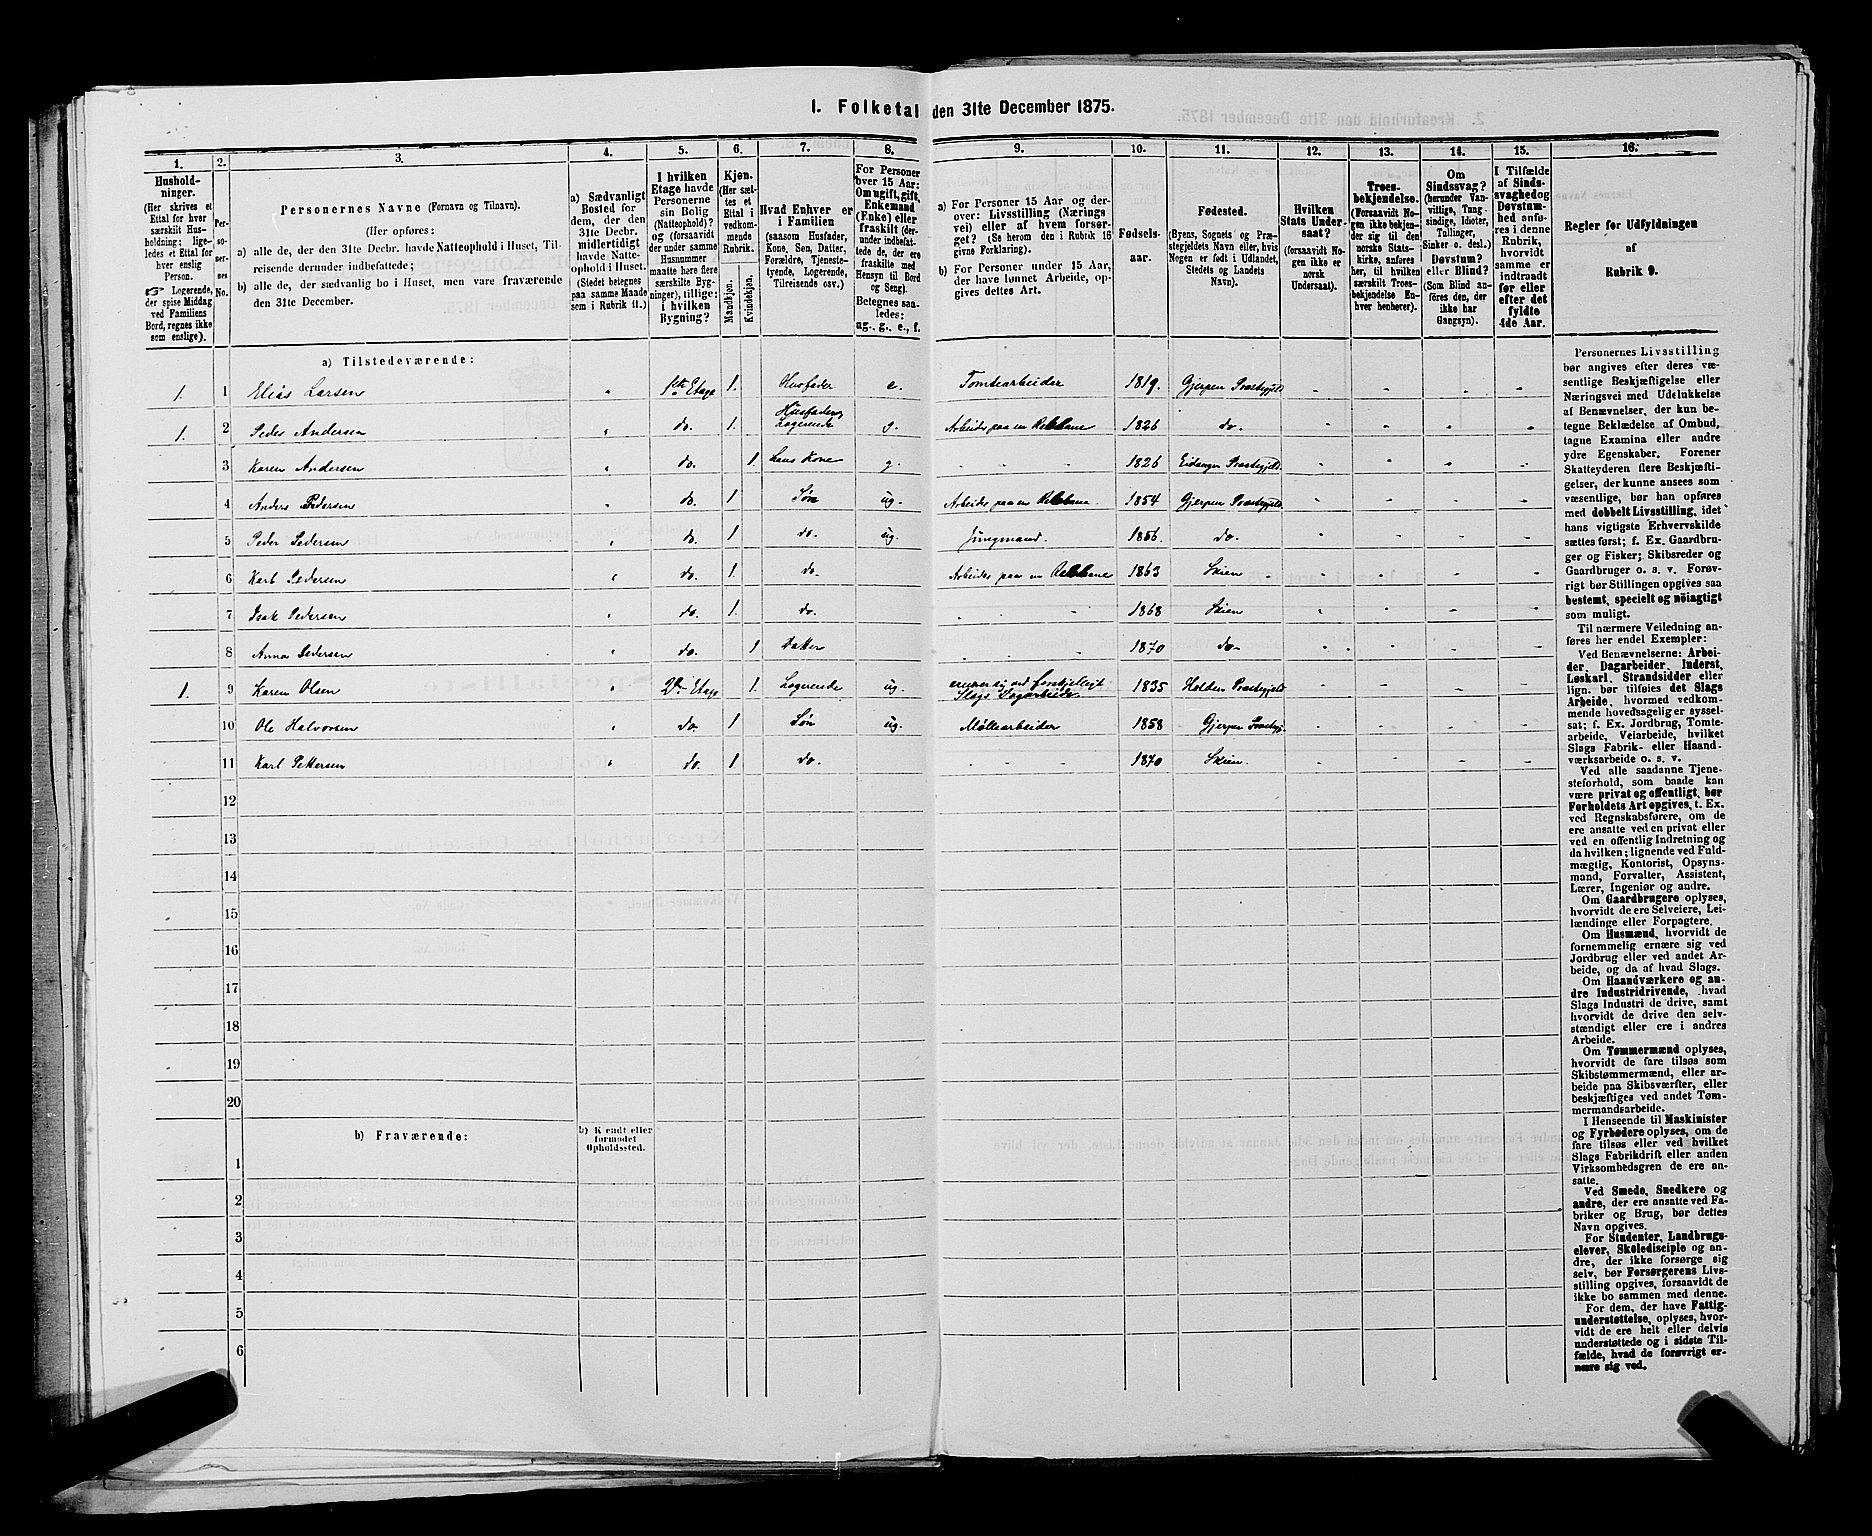 1. Folketal den 31te December 1875.
1.
Hushold-
ninger.
(Her skrives et
Ettal for hver
særskilt Hus-
holdning; lige-
ledes et Ettal for
hver enslig
Person.
☞ Logerende,
der spise Middag
ved Familiens
Bord, regnes ikke
som enslige).
2.
Per-
so-
ner-
nes
No.
3.
Personernes Navne (Fornavn og Tilnavn).
(Her opføres:
a) alle de, der den 31te Decbr. havde Natteophold i Huset, Til-
reisende derunder indbefattede;
b) alle de, der sædvanlig bo i Huset, men vare fraværende
den 31te December.
4.
a) Sædvanligt
Bosted for
dem, der den
31te Decbr.
midlertidigt
havde Natte-
ophold i Huset.
(Stedet betegnes
paa samme Maade
som i Rubrik 11.)
5.
I hvilken
Etage havde
Personerne
sin Bolig
(Natteophold)?
og (forsaavidt
der under samme
Husnummer
maatte høre flere
særskilte Byg-
ninger), tillige:
i hvilken
Bygning?
6.
Kjøn.
(Her sæt-
tes et
Ettal i
vedkom-
mende
Rubrik.
Mandkjøn.
Kvindekjøn.
7.
Hvad Enhver er
i Familien
(saasom Husfader,
Kone, Søn, Datter,
Forældre, Tjeneste-
tyende, Logerende,
Tilreisende osv.)
8.
For Personer
over 15 Aar:
Om ugift, gift,
Enkemand
(Enke) eller
fraskilt (der-
under indbefat-
tede de, der ere
fraskilte med
Hensyn til Bord
og Seng).
Betegnes saa-
ledes:
ug., g., e., f.
9.
a) For Personer 15 Aar og der-
over: Livsstilling (Nærings
vei) eller af hvem forsør-
get? (Se herom den i Rubrik 16
givne Forklaring).
b) For Personer under 15 Aar,
der have lønnet Arbeide, op-
gives dettes Art.
10.
Fødsels-
aar.
11.
Fødested.
(Byens, Sognets og Præ-
stegjeldets Navn eller, hvis
Nogen er født i Udlandet,
Stedets og Landets
Navn).
12.
Hvilken
Stats Under-
saat?
(forsaavidt No-
gen ikke er
norsk
Undersaat).
13.
Troes-
bekjendelse.
(Forsaavidt No-
gen ikke bekjen-
der sig til den
norske Stats-
kirke, anføres
her, til hvilken
særskilt Troes-
bekjendelse En-
hver henhører).
14.
Om
Sindssvag?
(herunder Van-
vittige, Tung-
sindige, Idioter,
Tullinger,
Sinker o. desl.)
Døvstum?
eller Blind?
(Som Blind an-
føres den, der
ikke har
Gangsyn).
15.
I Tilfælde
af Sinds-
svaghed og
Døvstum-
hed anfø-
res i denne
Rubrik,
hvorvidt
samme er
indtraadt
før eller
efter det
fyldte
4de Aar.
16.
Regler for Udfyldningen
af
Rubrik 9.
a) Tilstedeværende:
1. 1 Elias Larsen " 1ste Etage 1. Husfader e. Tomtearbeider 1819. Gjerpen Præstegjeld - - - -
1. 2 Peder Andersen " do. 1. Husfader, Logerende g. Arbeider paa en Rebbane 1826 do. - - - -
3 Karen Andersen " do. 1. Hans Kone g. - - 1826 Eidanger Præstegjeld. - - - -
4 Anders Pedersen " do. 1 Søn ug. Arbeider paa en Rebbane. 1854 Gjerpen Præstegjeld. - - - -
5 Peder Pedersen " do. 1 do. ug. Jungmand. 1856. do. - - - -
6 Karl Pedersen " do. 1. do. Arbeider paa en Rebbane 1863 Skien - - - -
7 Isak Pedersen " do. 1. do. - - 1868 Skien - - - -
8 Anna Pedersen " do. 1 Datter - - 1870 do - - - -
1. 9 Karen Olsen " 2den Etage 1. Logerende ug. ernærer sig ved forskjelligt Slags Dagarbeide 1835 Holden Præstegjeld - - - -
10 Ole Halvorsen " do. 1 Søn ug. Møllearbeider 1858 Gjerpen Præstegj. - - - -
11 Karl Pettersen " do. 1 do. - - 1870 Skien. - - - -
12
13
14
15
16
17
18
19
20
b) Fraværende:
b) Kjendt eller
formodet
Opholdssted.
1
2
3
4
5
6
Personernes Livsstilling
bør angives efter deres væ-
sentlige Beskjæftigelse eller
Næringsvei med Udelukkelse
af Benævnelser, der kun be-
tegne Beklædelse af Ombud,
tagne Examina eller andre
ydre Egenskaber. Forener
Skatteyderen flere Beskjæfti-
gelser, der kunne ansees som
væsentlige, bør han opføres
med dobbelt Livsstilling, idet
hans vigtigste Erhvervskilde
sættes først; f. Ex. Gaardbru-
ger og Fisker; Skibsreder og
Gaardbruger o. s. v. Forøv-
rigt bør Stillingen opgives saa
bestemt, specielt og nöiagtigt
som muligt.
Til nærmere Veiledning an-
føres her endel Exempler:
Ved Benævnelserne: Arbei-
der, Dagarbeider, Inderst,
Løskarl, Strandsidder eller
lign. bør tilføies det Slags
Arbeide, hvormed vedkom-
mende hovedsagelig er syssel-
sat; f. Ex. Jordbrug, Tomte-
arbeide, Veiarbeide, hvilket
Slags Fabrik- eller Haand-
værksarbeide o. s. v.
Ved alle saadanne Tjene-
steforhold, som baade kan
være privat og offentligt, bør
Forholdets Art opgives, t. Ex.
ved Regnskabsførere, om de
ere ansatte ved en privat eller
ved en offentlig Indretning og
da hvilken; lignende ved Fuld-
mægtig, Kontorist, Opsyns-
mand, Forvalter, Assistent,
Lærer, Ingeniør og andre.
Om Gaardbrugere oplyses,
hvorvidt de ere Selveiere, Lei-
lændinge eller Forpagtere.
Om Husmænd, hvorvidt de
fornemmelig ernære sig ved
Jordbrug eller ved andet Ar-
beide, og da af hvad Slags.
Om Haandværkere og an-
dre Industridrivende, hvad
Slags Industri de drive, samt
hvorvidt de drive den selv-
stændigt eller ere i andres
Arbeide.
Om Tømmermænd oplyses,
hvorvidt de fare tilsøs som
Skibstømmermænd, eller ar-
beide paa Skibsværfter, eller
beskjæftiges ved andet Tøm-
mermandsarbeide.
I Henseende til Maskinister
og Fyrbødere oplyses, om de
fare tilsøs eller ved hvilket
Slags Fabrikdrift eller anden
Virksomhedsgren de ere an-
satte.
Ved Smede, Snedkere og
andre, der ere ansatte ved Fa-
briker og Brug, bør dettes
Navn opgives.
For Studenter, Landbrugs-
elever, Skoledisciple og an-
dre, der ikke forsørge sig
selv, bør Forsørgerens Livs-
stilling opgives, forsaavidt de
ikke bo sammen med denne.
For dem, der have Fattig-
understøttelse, oplyses, hvor-
vidt de ere helt eller delvis
understøttede og i sidste Til-
fælde, hvad de forøvrigt er-
nære sig ved.